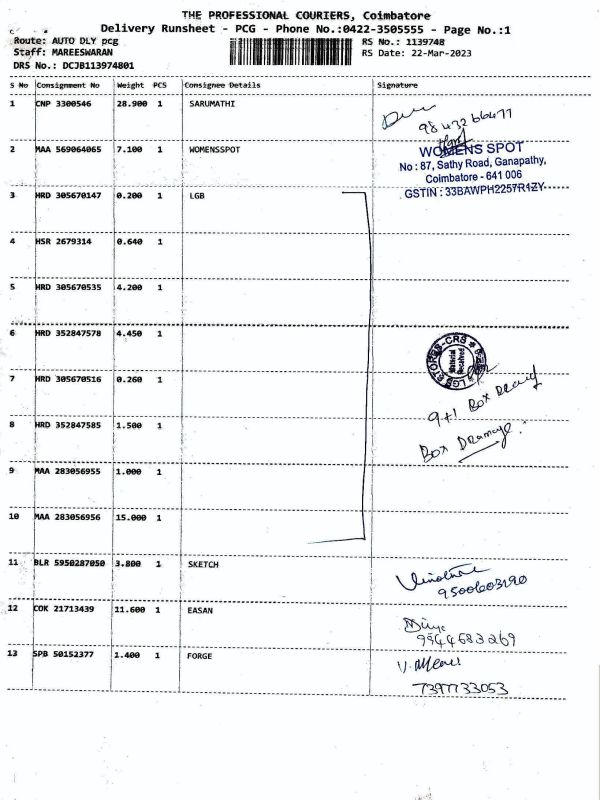 THE PROFESSIONAL COURIERS, Coimbatore
Delivery Runsheet - PCG - Phone No.:0422-3505555 - Page No.:1
Route: AUTO DLY pcg
RS No.: 1139748
Staff: MAREESWARAN
RS Date: 22-Mar-2023
DRS No.: DCJB113974801
S No Consignment No Weight PCS Consignee Details Signature
1 CNP 3300546 28.900 1 SARUMATHI
9843266477
2 MAA 569064065 7.100 1 WOMENSSPOT
WOMENS SPOT
No : 87, Sathy Road, Ganapathy,
Coimbatore - 641 006
GSTIN : 33BAWPH2257R1ZY
3 HRD 305670147 0.200 1 LGB
4 HSR 2679314 0.640 1
5 HRD 305670535 4.200 1
6 HRD 352847578 4.450 1
LGB STORES-CRS
Material
Received
7 HRD 305670516 0.260 1
9+1 Box
8 HRD 352847585 1.500 1
Box Dramage.
9 MAA 283056955 1.000 1
10 MAA 283056956 15.000 1
11 BLR 5950287050 3.800 1 SKETCH
9500603190
12 COK 21713439 11.600 1 EASAN
9944683269
13 SPB 50152377 1.400 1 FORGE
7397733053